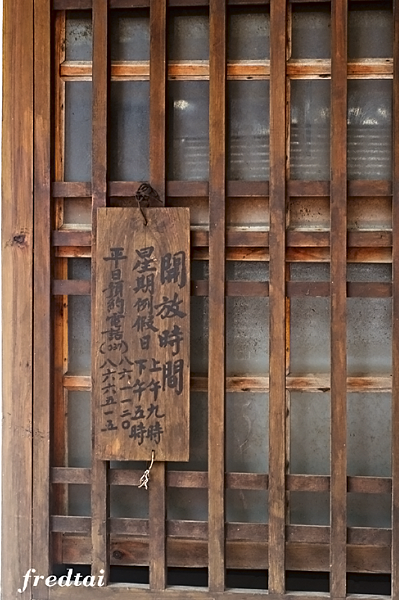 開放時間
星期例假日
上午九時
下午五時
平日預約電話
八六一一二〇
八六六五一五
fredtai